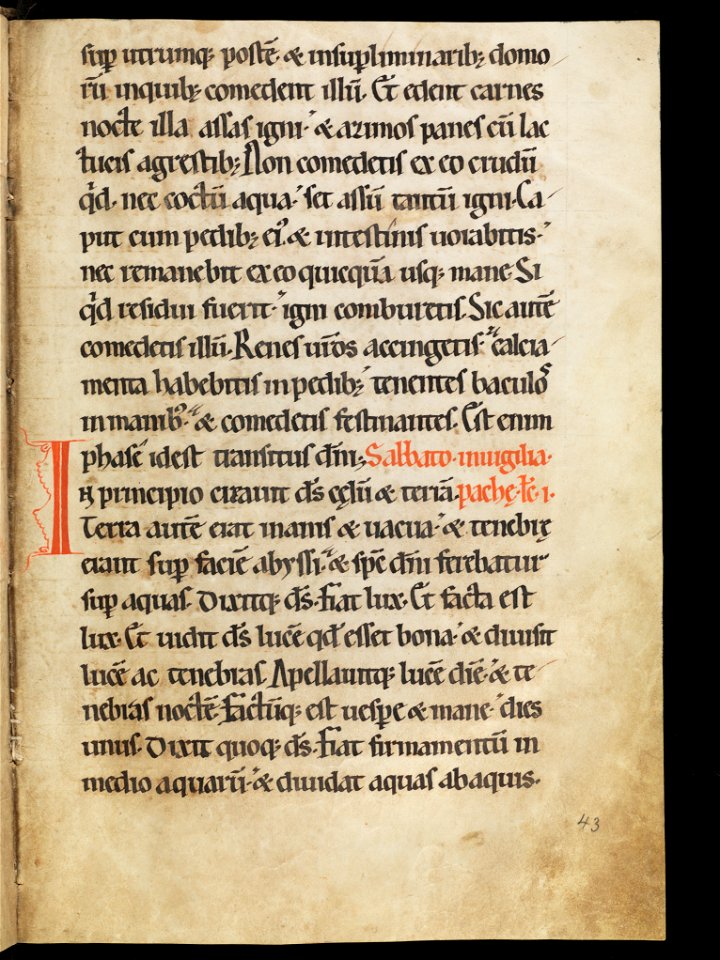 sup̱ utrumq; postē· & insup̱liminarib; domo
rū inquib; comedent illū. Et edent carnes
nocte illa assas igni· & azimos panes cū lac
tucis agrestib; Non comedetis ex eo crudū
q̇d· nec coctū aqua· set assū tantū igni· Ca
put cum pedib; ei᾽· & intestinis uorabitis·
nec remanebit ex eo quicquā usq; mane· Si
q̇d residui fuerit· igni comburetis. Sic autē
comedetis illū. Renes ur̄os accingetis· calcia
menta habebitis in pedib; tenentes baculos
in manib᾽· & comedetis festinantes. Est enim
phase idest transitus dn̄i; Sabbato· inuigilia·
In principio creauit ds̄ cęlū & terrā. paschę· łc̄· i·
Terra autē erat inanis & uacua· & tenebrę
erant sup̱ faciē abyssi· & sp̄c dn̄i ferebatur
sup̱ aquas. Dixitq; ds̄· Fiat lux· Et facta est
lux· Et uidit ds̄ lucē qd̄ esset bona· & diuisit
lucē ac tenebras. Apellauitq; lucē diē· & te
nebras noctē. Factūq; est uesp̱e & mane· dies
unus. Dixit quoq; ds̄. Fiat firmamentū in
medio aquarū· & diuidat aquas abaquis·
43